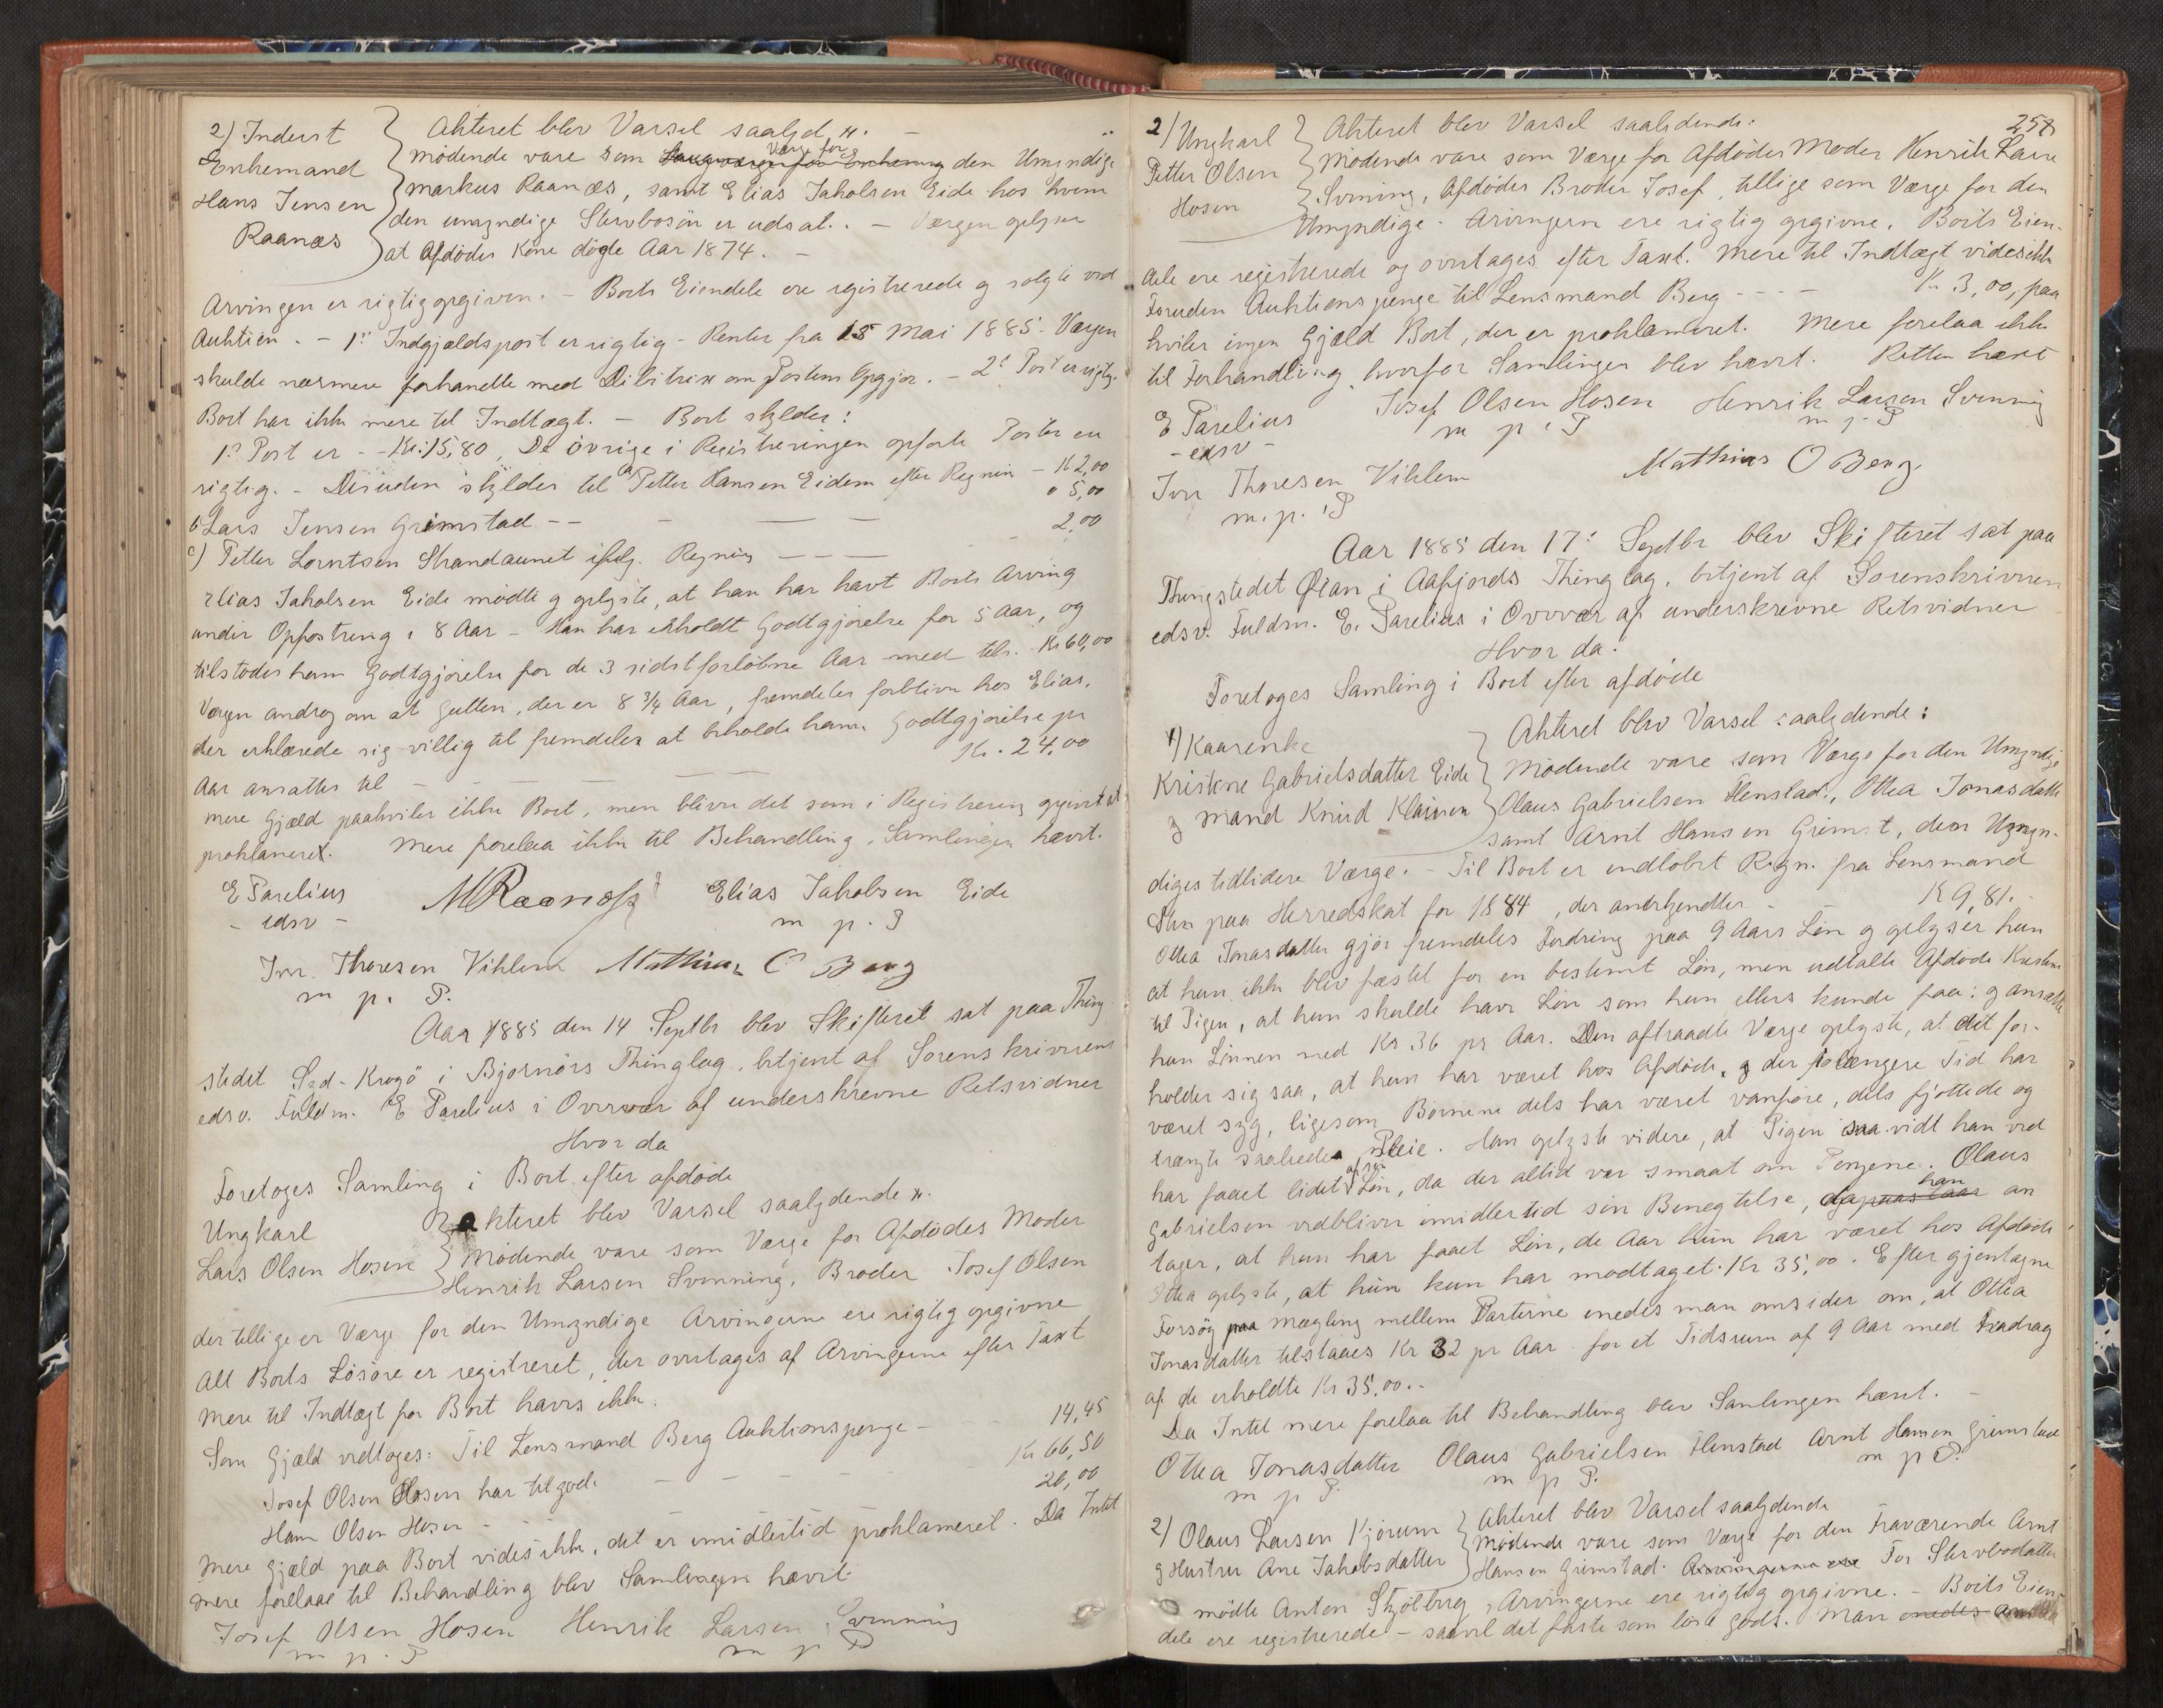 2) Inderst
Enkemand
Hans Jensen
Raanæs
Akteret blev Varsel saalyd. ".
mødende vare som Værge for den Umyndige
markus Raanæs, samt Elias Jakobsen Eide hos hvem
den umyndige Stervbosön er udsat. - Værgen oplyser
at Afdødes Kone døde Aar 1874. -
Arvingen er rigtig opgiven. - Boets Eiendele ere registrerede og solgte ved
Auktion. - 1ste Indgjældspost er rigtig - Renter fra 15 Mai 1885 - Værgen
skulde nærmere forhandle med Debitrix om Postens Opgjør. - 2den Post er rigtig.
Boet har ikke mere til Indtægt. - Boet skylder:
1ste Post er - - Kr. 15,80, De övrige i Registreringen opførte Poster ere
rigtig. - Desuden skyldes til a Petter Hansen Eidem efter Regning - K 2,00
b Lars Jensen Grimstad - - - - - " 5,00
c) Petter Lorntsen Strandaunet ifølg. Regning - - - - 2,00
Elias Jakobsen Eide mødte og oplyste, at han har havt Boets Arving
under Opfostring i 8 Aar - Han har erholdt Godtgjørelse for 5 Aar, og
tilstodes ham Godtgjørelse for de 3 sidst forløbne Aar med tils. Kr 60,00
Værgen androg om at Gutten, der er 8 3/4 Aar, fremdeles forbliver hos Elias,
der erklærede sig villig til fremdeles at beholde ham. Godtgjørelse pr
Aar ansattes til - - - - - Kr. 24,00
mere Gjæld paahviler ikke Boet, men bliver det som i Registrering opgivet at
proklameret. Mere forelaa ikke til Behandling. Samlingen hævet.
E Parelius
- edsv -
MRaanæs
Elias Jakobsen Eide
m p. P
Iver Thoresen Viklem
m p. P.
Mathias O Berg
Aar 1885 den 14 Septbr blev Skifteret sat paa Thing
stedet Syd-Krogö i Bjørnörs Thinglag, betjent af Sorenskriverens
edsv. Fuldm. E Parelius i Overvær af underskrevne Retsvidner
Hvor da
Foretoges Samling i Boet efter afdøde
Ungkarl
Lars Olsen Hosen
akteret blev Varsel saalydende ".
Mødende vare som Værge for Afdødes Moder
Henrik Larsen Svenning, Broder Josef Olsen
der tillige er Værge for den Umyndige Arvingerne ere rigtig opgivne
Alt Boets Løsöre er registreret, der overtages af Arvingerne efter Taxt
Mere til Indtægt for Boet haves ikke.
Som Gjæld vedtoges: Til Lensmand Berg Auktionspenge - 14,45
Josef Olsen Hosen har tilgode - - - Kr 66,50
Hans Olsen Hosen - - - 20,00
Mere Gjæld paa Boet vides ikke, det er imidlertid proklameret. Da Intet
mere forelaae til Behandling blev Samlingen hævet.
Josef Olsen Hosen
m p. P
Henrik Larsen Svenning
m p P
258
2) Ungkarl
Petter Olsen
Hosen
Akteret blev Varsel saalydende:
Mødende vare som Værge for Afdødes Moder Henrik Larsen
Svening, Afdødes Broder Josef, tillige som Værge for den
Umyndige. Arvingern ere rigtig opgivne. Boets Eien-
dele ere registrerede og overtages efter Taxt. Mere til Indtægt vides ikke
Foruden Auktionspenge til Lensmand Berg - - - - Kr. 3,00, paa
hviler ingen Gjæld Boet, der er proklameret. Mere forelaa ikke
til Forhandling, hvorfor Samlingen blev hævet. Retten hævet
E Parelius
- edsv -
Josef Olsen Hosen
m p. P
Henrik Larsen Svenning
m p. P
Iver Thoresen Viklem
m. p. P
Mathias O Berg
Aar 1885 den 17de Septbr blev Skifteret sat paa
Thingstedet Øian i Aafjords Thinglag, betjent af Sorenskriveren
edsv. Fuldm. E. Parelius i Overvær af underskrevne Retsvidner
Hvor da:
Foretoges Samling i Boet efter afdøde
1) Kaarenke
Kristine Gabrielsdatter Eide
og mand Knud Klausen
Akteret blev Varsel saalydende:
Mødende vare som Værge for den Umyndige
Olaus Gabrielsen Flenstad, Ottea Jonasdatter
samt Arnt Hansen Grimst, den Umyn-
diges tidligere Værge. - Til Boet er indløbet Regn. fra Lensmand
Stm paa Herredskat for 1884, der anerkjendtes - - K 9,81.-
Ottea Jonasdatter gjør fremdeles Fordring paa 9 Aars Løn og oplyser hun
at hun ikke blev fæstet for en bestemt Løn, men udtalte Afdøde Kristine
til Pigen, at hun skulde have Løn som hun ellers kunde faa; og ansatte
hun Lønnen ved Kr 36 pr Aar. Den aftraadte Værge oplyste, at det for-
holder sig saa, at hun har været hos Afdøde, og der i længere Tid har
været syg, ligesom Børnene dels har været vanføre, dels fjottede og
trængte saaledes Pleie. Han oplyste videre, at Pigen saavidt han ved
har faaet lidet af sin Løn, da der altid var smaat om Pengene. Olaus
Gabrielsen vedbliver imidlertid sin Benegtelse, da han an
tager, at hun har faaet Løn, de Aar hun har været hos Afdøde
Ottea oplyste, at hun kun har modtaget Kr 35,00. Efter gjentagne
Forsøg paa Mægling mellem Parterne enedes man omsider om, at Ottea
Jonasdatter tilstaaes Kr 32 pr Aar for et Tidsrum af 9 Aar med Fradrag
af de erholdte Kr 35.00.-
Da Intet mere forelaa til Behandling blev Samlingen hævet. -
Ottea Jonasdatter
m p P.
Olaus Gabrielsen Flenstad
m p P.
Arnt Hansen Grimstad
m p P.
2) Olaus Larsen Kjørum
og Hustru Ane Jakobsdatter
Akteret blev Varsel saalydende
Mødende vare som Værge for den Fraværende Arnt
Hansen Grimstad. Arvingerne ere For Stervbodatter
mødte Anton Skjølberg, Arvingerne ere rigtig opgivne. - Boets Eien-
dele ere registrerede - saavel det faste som løse Gods. Man enedes om